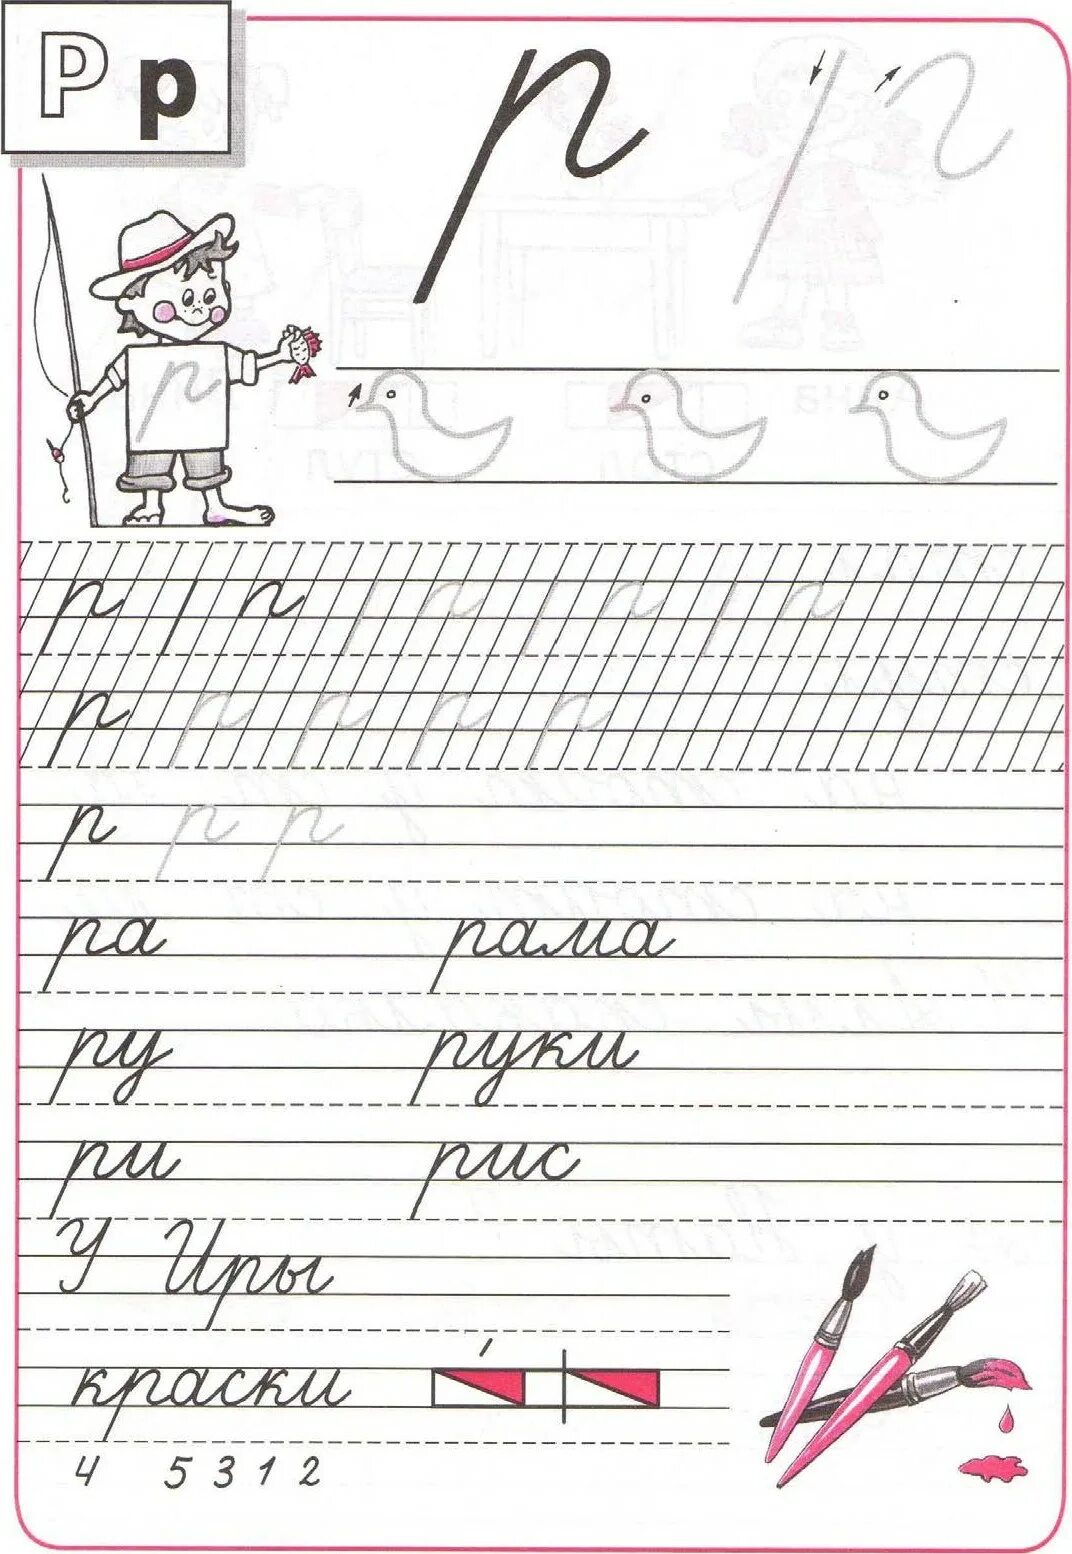 Р р
р
р
р р р р р
р р р р р
р р р
ра рама
ру руки
ри рис
У Иры
краски
4 5 3 1 2